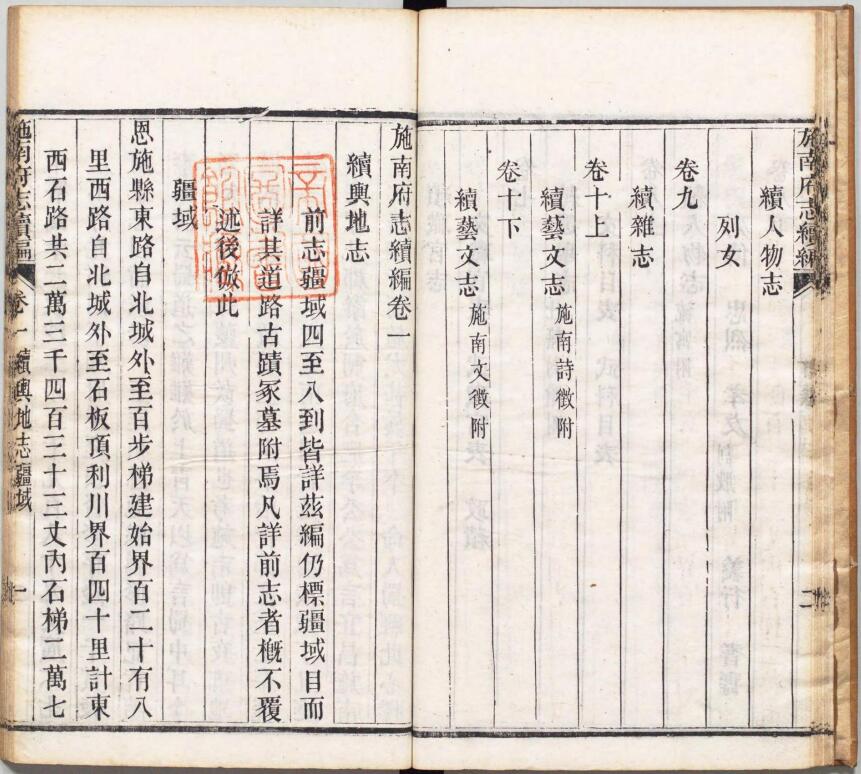 施南府志續編
續人物志
列女
卷九
續雜志
卷十上
續藝文志 施南詩徵附
卷十下
續藝文志 施南文徵附
二
施南府志續編卷一
續輿地志
前志疆域四至八到皆詳茲編仍標疆域目而
詳其道路古蹟冢墓附焉凡詳前志者槪不覆
述後倣此
疆域
恩施縣東路自北城外至百步梯建始界百二十有八
里西路自北城外至石板頂利川界百四十里計東
西石路共二萬三千四百三十三丈內石梯二萬七
施南府志續編 卷一 續輿地志疆域 一